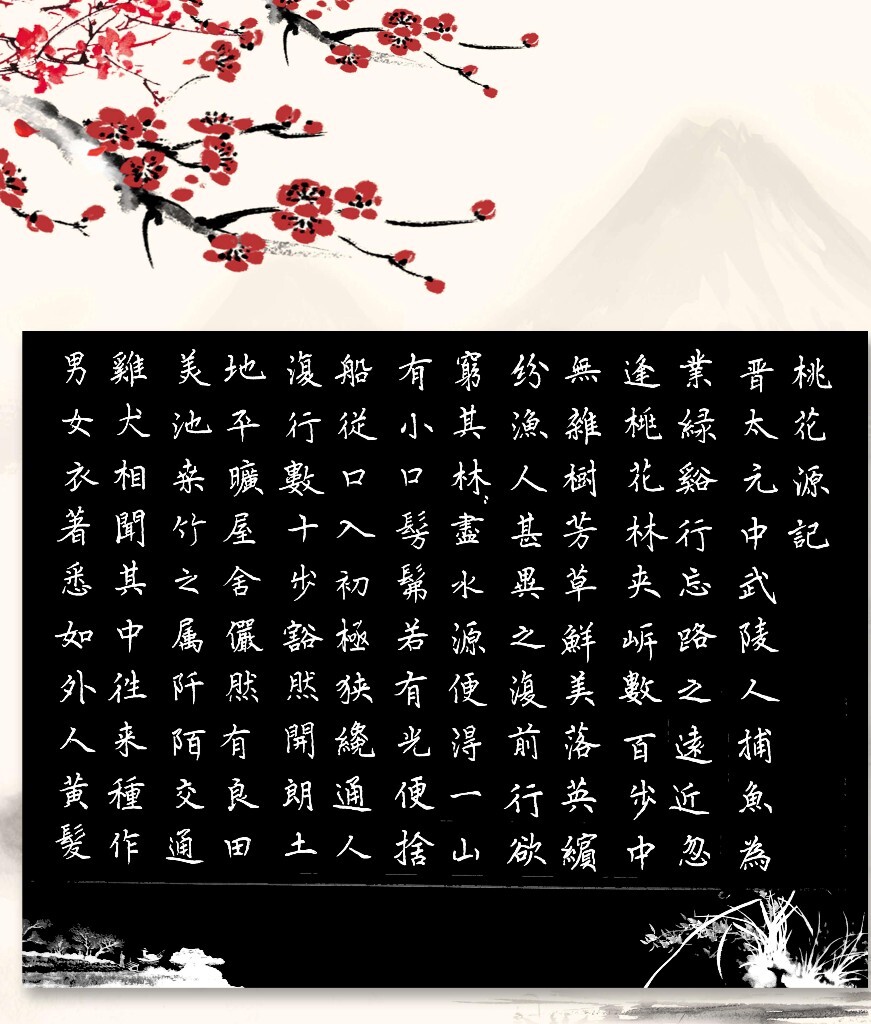 桃花源記
晋太元中武陵人捕魚為
業緑谿行忘路之遠近忽
逢桃花林夾岍數百步中
無雜樹芳草鮮美落英繽
纷漁人甚異之復前行欲
窮其林盡水源便得一山
有小口髣髴若有光便捨
船從口入初極狹纔通人
復行數十步豁然開朗土
地平曠屋舍儼然有良田
美池桒竹之属阡陌交通
雞犬相聞其中徃来種作
男女衣著悉如外人黄髮